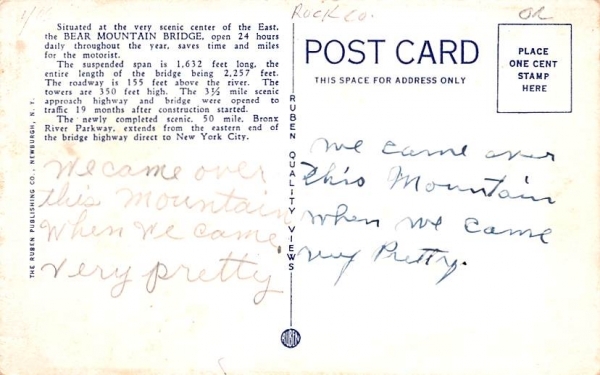 Rock Co.
OR
Situated at the very scenic center of the East,
the BEAR MOUNTAIN BRIDGE, open 24 hours
daily throughout the year, saves time and miles
for the motorist.
The suspended span is 1,632 feet long, the
entire length of the bridge being 2,257 feet.
The roadway is 155 feet above the river. The
towers are 350 feet high. The 3½ mile scenic
approach highway and bridge were opened to
traffic 19 months after construction started.
The newly completed scenic, 50 mile, Bronx
River Parkway, extends from the eastern end of
the bridge highway direct to New York City.
We came over
this Mountain
When we came
very pretty
THE RUBEN PUBLISHING CO., NEWBURGH, N. Y.
RUBEN QUALITY VIEWS
RUBEN
POST CARD
THIS SPACE FOR ADDRESS ONLY
PLACE
ONE CENT
STAMP
HERE
We came over
this Mountain
when we came
very Pretty.